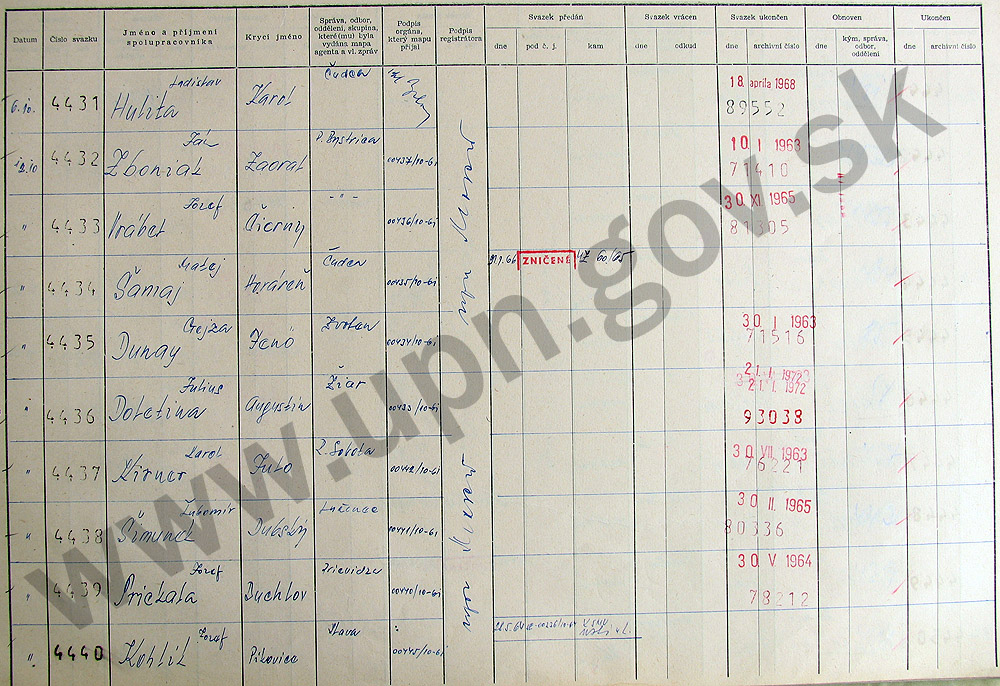 Datum
Číslo svazku
Jméno a příjmení spolupracovníka
Krycí jméno
Správa, odbor, oddělení, skupina, které(mu) byla vydána mapa agenta a vl. zpráv
Podpis orgána, který mapu přijal
Podpis registrátora
Svazek předán
dne
pod č. j.
kam
Svazek vrácen
dne
odkud
Svazek ukončen
dne
archivní číslo
Obnoven
dne
kým, správa, odbor, oddělení
Ukončen
dne
archivní číslo
6.10. 4431 Ladislav Hulita Karol Čadca 18. apríla 1968 89552
4432 Ján Zboniak Zaoral P. Bystrica 00437/10-61 10. I 1963 71410
" 4433 Jozef Vrábel Čierny -"- 00436/10-61 30. XI 1965 81305
" 4434 Matej Šamaj Horáreň Čadca 00435/10-61 ZNIČENÉ
" 4435 Gejza Dunay Fenó Zvolen 00434/10-61 30. I 1963 71516
" 4436 Július Doletina Augustín Žiar 00433/10-61 21. I. 1972 93038
" 4437 Karol Kirner Juto R. Sobota 00442/10-61 30. VII. 1963 76221
" 4438 Ľubomír Šimunek Dubský Lučenec 00441/10-61 30. II. 1965 80336
" 4439 Jozef Priekala Duchlov Prievidza 00440/10-61 30. V 1964 78212
" 4440 Jozef Kohlík Pikovica Ilava 00445/10-61
www.upn.gov.sk